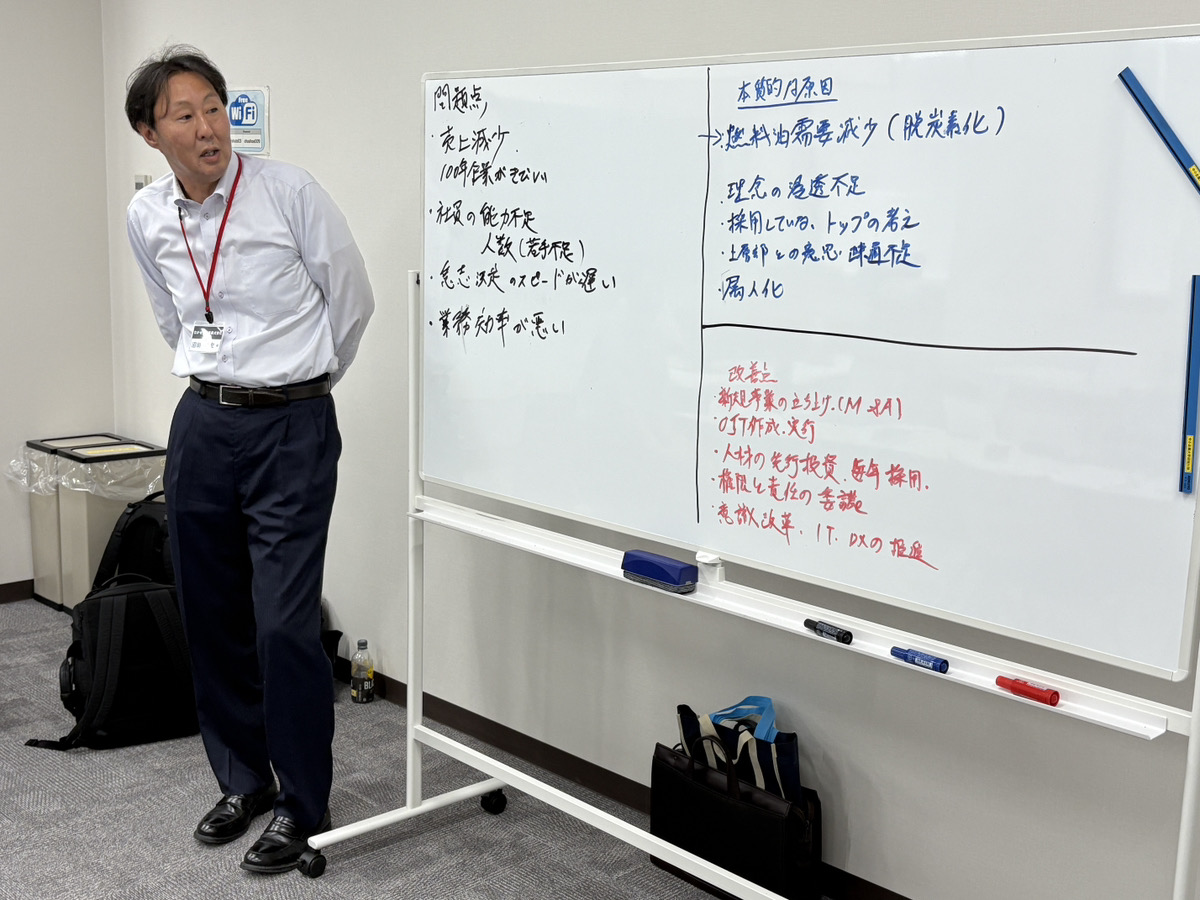 Free
Wi Fi
問題点
・売上減少
100年企業がそびい
・社員の能力不足
人数(若手不足)
・意志決定のスピードが遅い
・業務効率が悪い
本質的な原因
→・燃料油需要減少(脱炭素化)
・理念の浸透不足
・採用している、トップの考え
・上層部との意思疎通不足
・属人化
改善点
・新規事業の立ち上げ.(M&A)
・OJT作成.実行
・人材の先行投資.毎年採用.
・権限と責任の委譲
・意識改革.IT.DXの推進